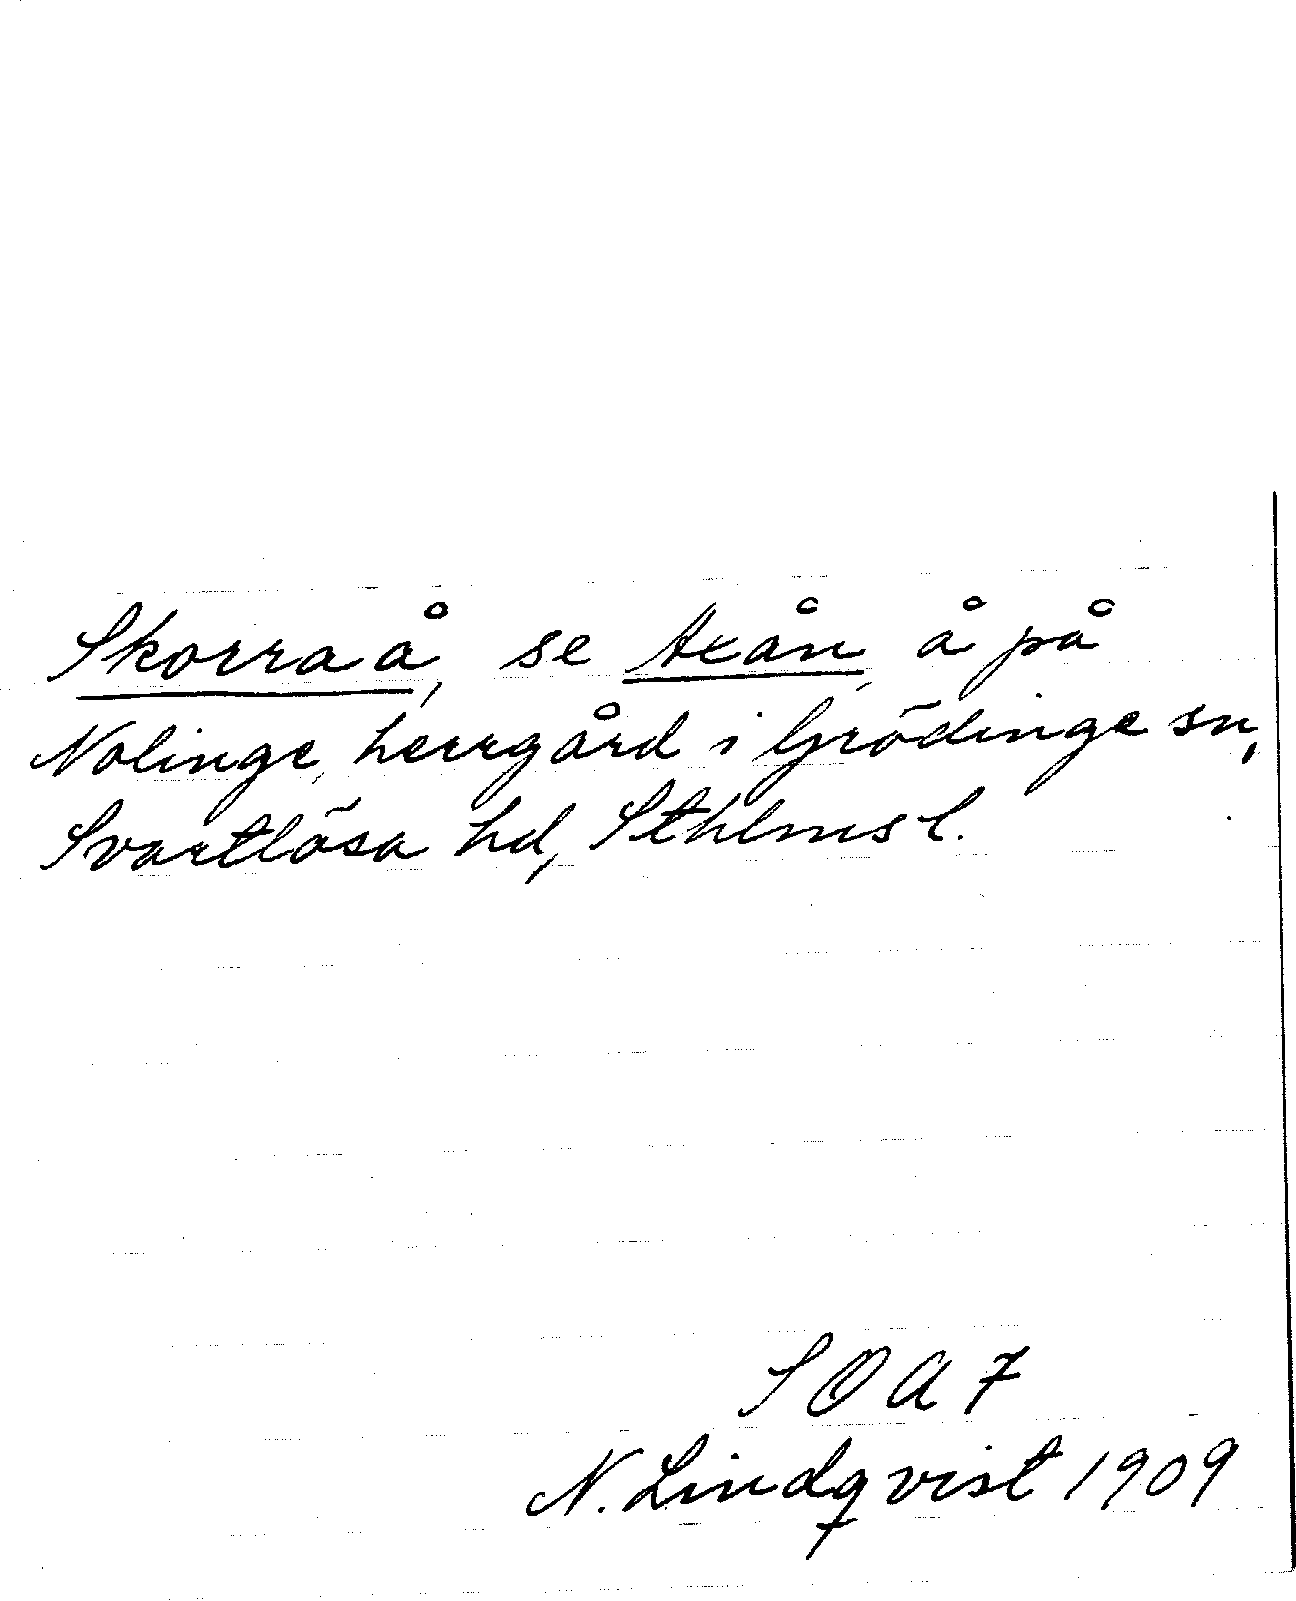 Skorraå, se Axån, å på
Nolinge, herrgård i Grödinge sn,
Svartlösa hd, Sthlms l.
SOA 7
N. Lindqvist 1909